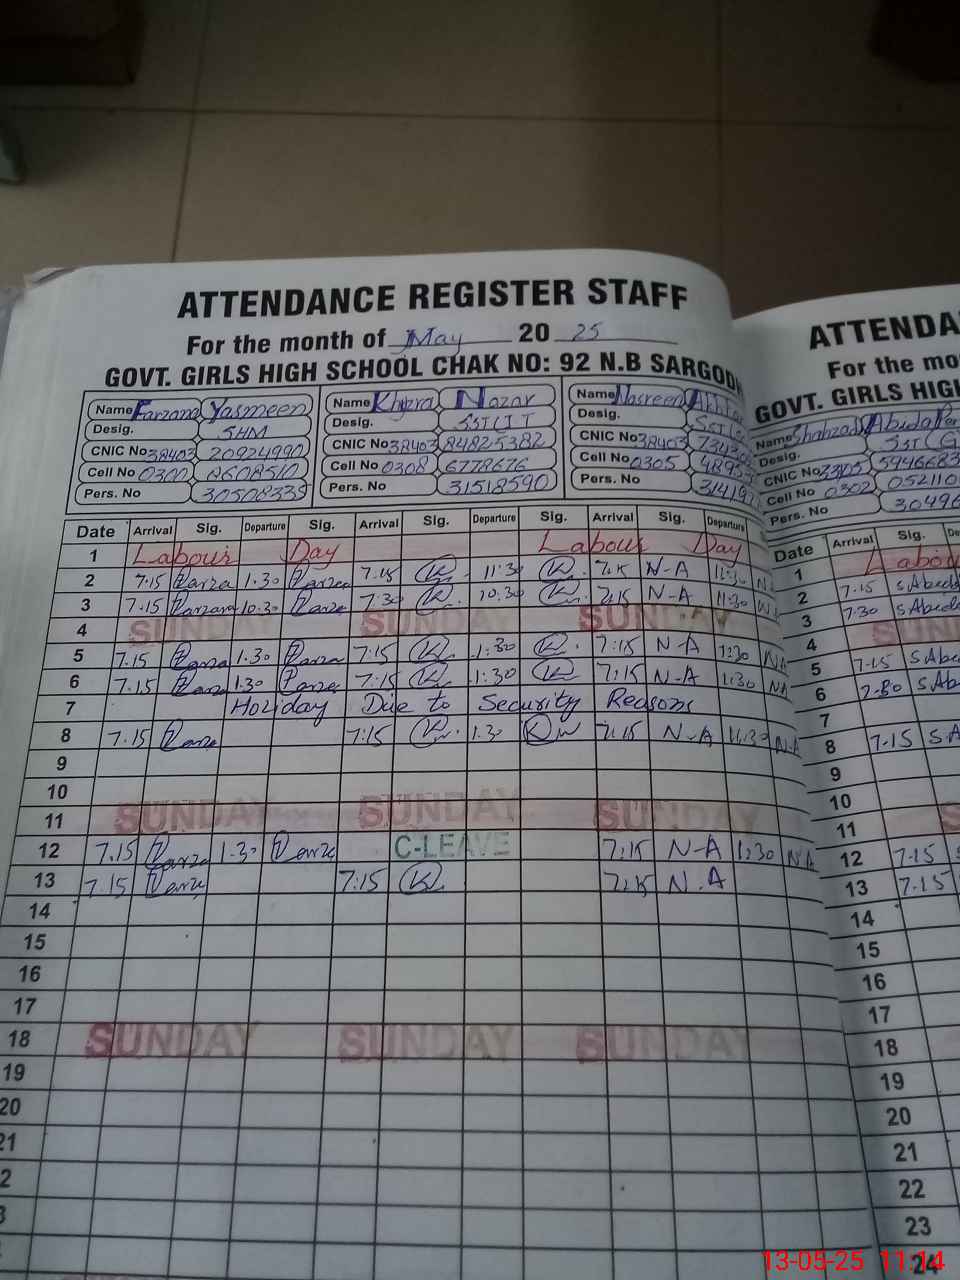 ATTENDANCE REGISTER STAFF
For the month of May 20 25
GOVT. GIRLS HIGH SCHOOL CHAK NO: 92 N.B SARGODH
Name Farzana Yasmeen
Desig. SHM
CNIC No 38403 20924990
Cell No 0300
Pers. No 30508335
Name Nazar
Desig. SST IT
CNIC No 38403 84825382
Cell No 0308 6778676
Pers. No 31518590
Name Nasreen Akhtar
Desig. SST
CNIC No 38403
Cell No 0305
Pers. No
Date Arrival Sig. Departure Sig. Arrival Sig. Departure Sig. Arrival Sig. Departure
1 Labour Day Labour Day
2 7.15 Farza 1.30 Farza 7.15 K 11:30 K 7.15 N-A 11:30
3 7.15 Farzana 10.30 Farza 7:30 K 10.30 K 7:15 N-A 11:30
4 SUNDAY SUNDAY SUNDAY
5 7.15 Farza 1.30 Farza 7:15 K 1:30 K 7:15 N-A 1:30 NA
6 7.15 Farza 1.30 Farza 7:15 K 1:30 K 7:15 N-A 1:30 NA
7 Holiday Due to Security Reasons
8 7.15 Farza 7:15 K 1.30 7:15 N-A 11:30 N-A
9
10
11 SUNDAY SUNDAY SUNDAY
12 7.15 Farza 1.30 Farza C-LEAVE 7:15 N-A 1:30 NA
13 7.15 Farza 7:15 K 7:15 N.A
14
15
16
17
18 SUNDAY SUNDAY SUNDAY
19
20
21
2
3
ATTENDA
For the mo
GOVT. GIRLS HIGH
Name Shahzadi Abida
Desig. SST
CNIC No 5946683
Cell No 0302 05211
Pers. No 30496
Date Arrival Sig.
1 Labou
2 7.15 S Abid
3 7.30 S Abid
4
5 7.15 S Abid
6 S Ab
7
8 7.15 S A
9
10
11
12 7.15
13 7.15
14
15
16
17
18
19
20
21
22
23
24
13-05-25 11:14